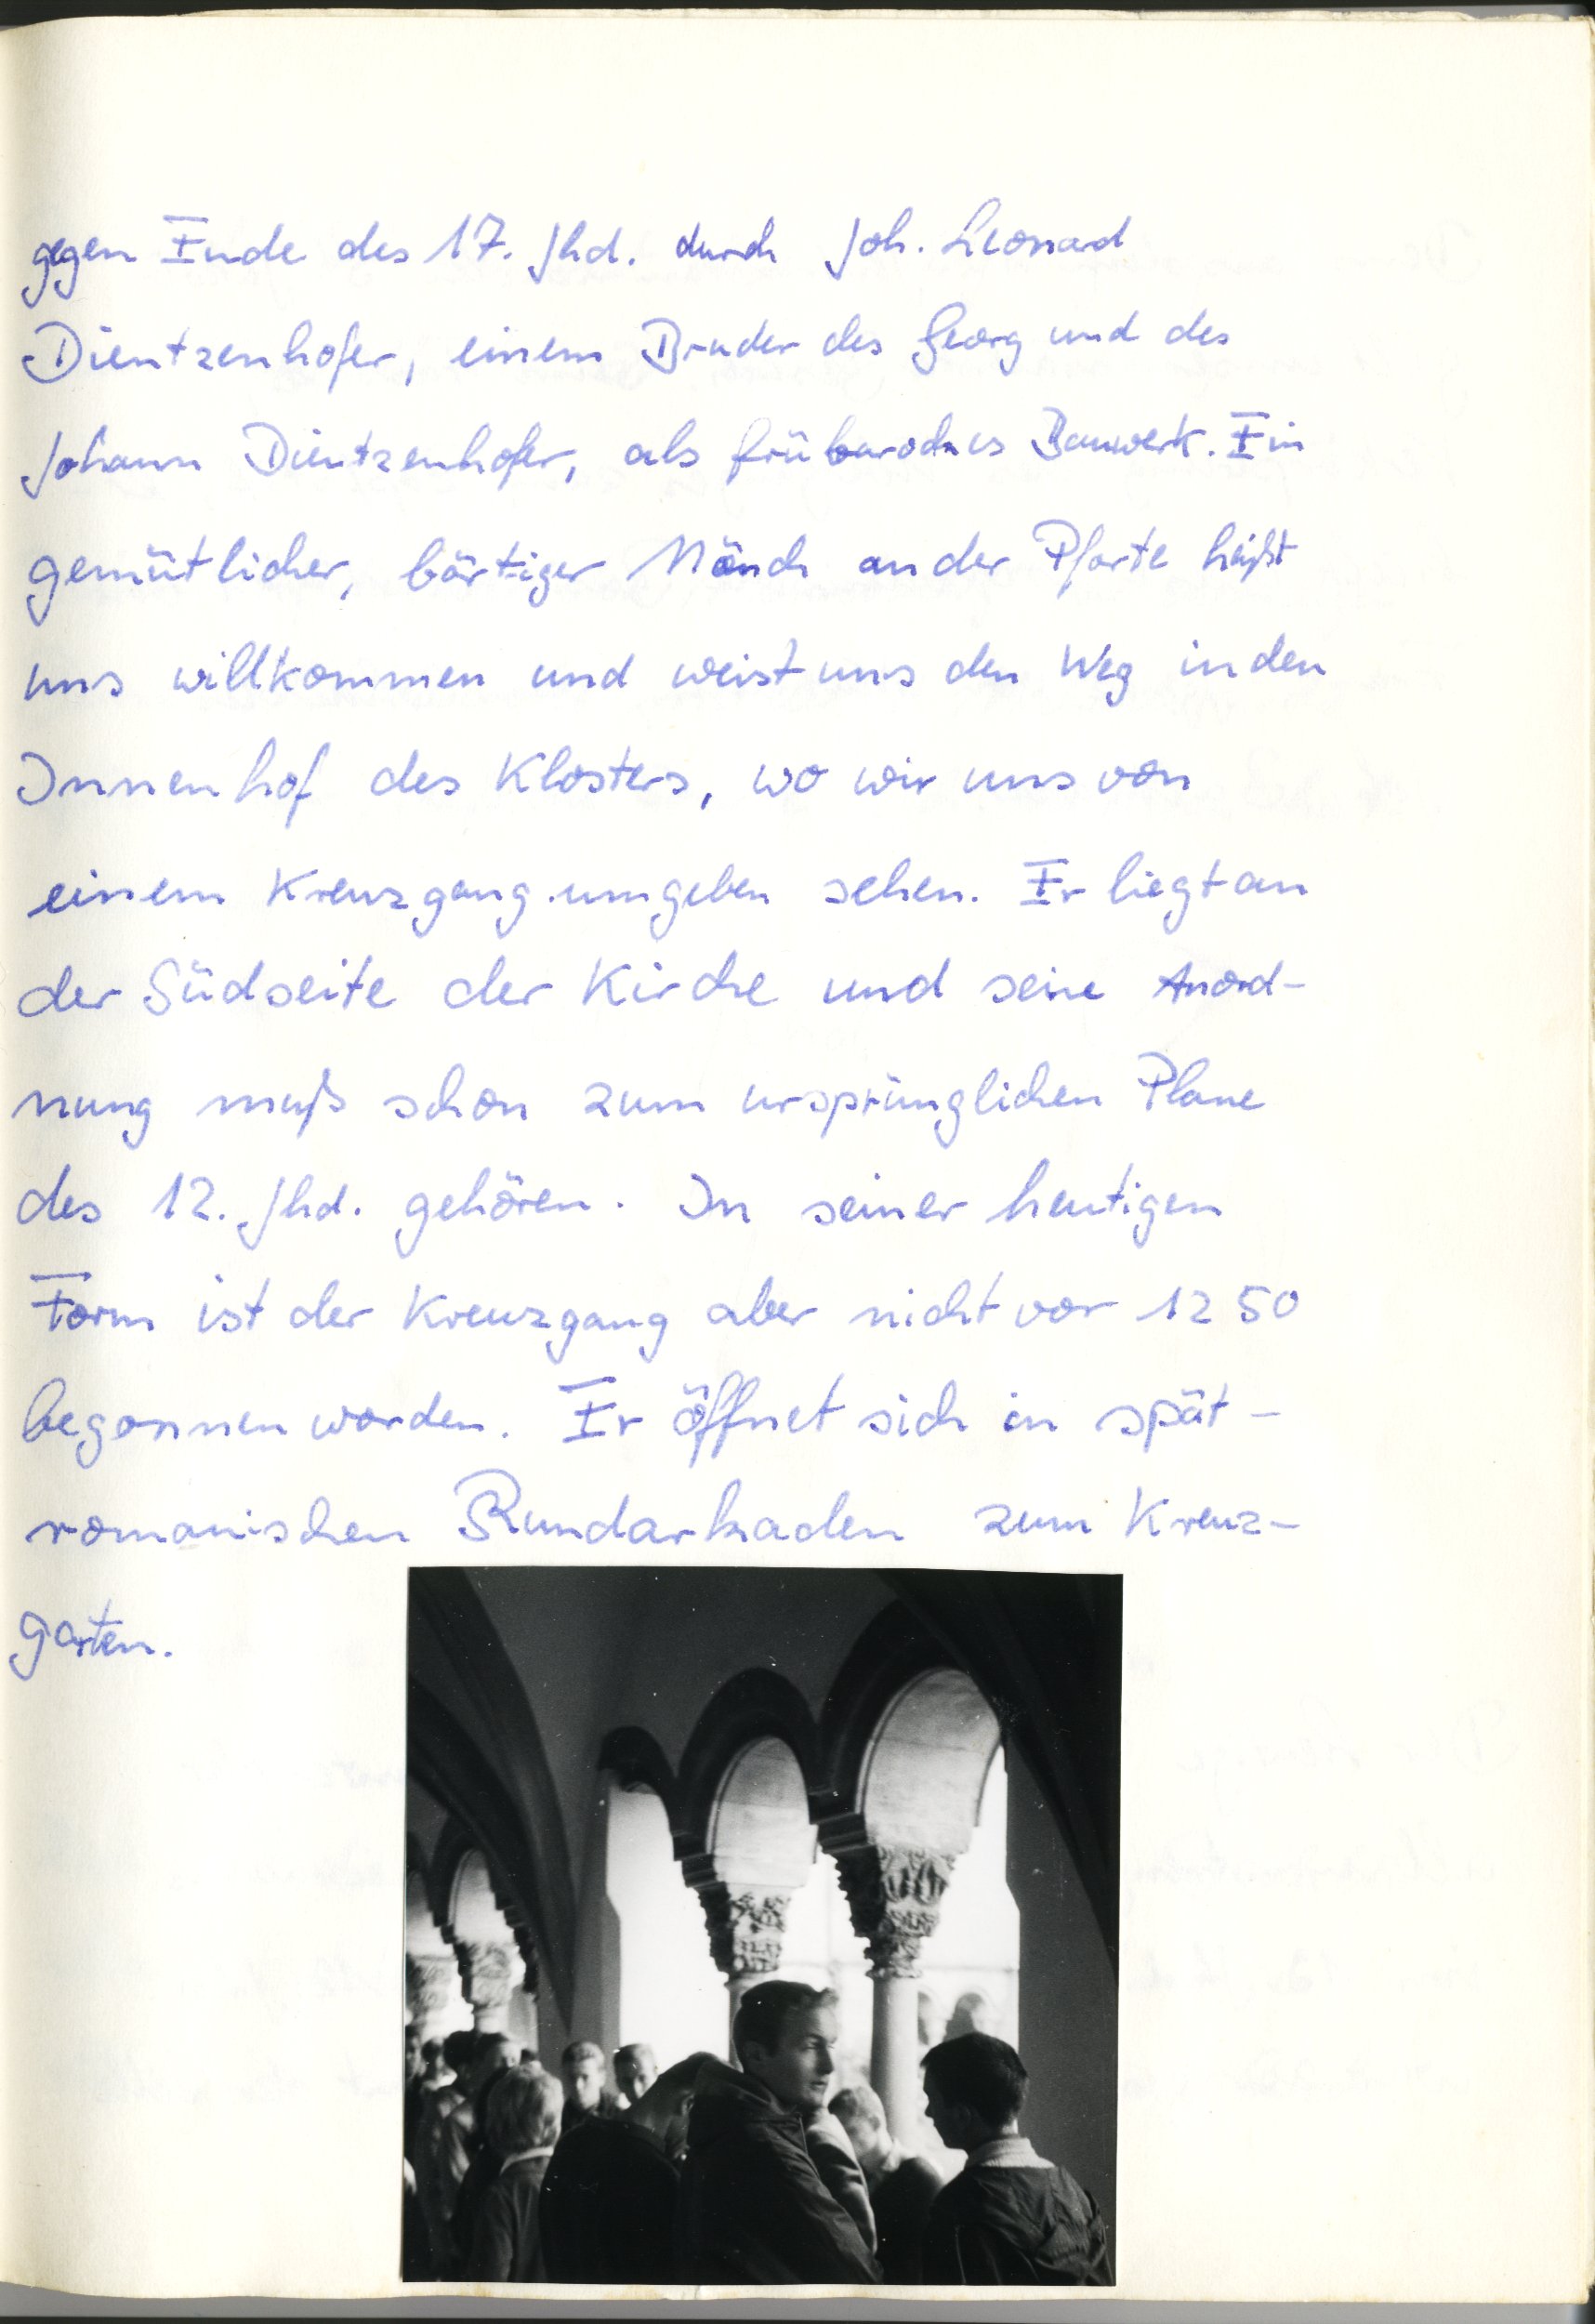 gegen Ende des 17. Jhd. durch Joh. Leonard
Dientzenhofer, einem Bruder des Georg und des
Johann Dientzenhofer, als frübarockes Bauwerk. Ein
gemütlicher, bärtiger Mönch an der Pforte heißt
uns willkommen und weist uns den Weg in den
Innenhof des Klosters, wo wir uns von
einem Kreuzgang umgeben sehen. Er liegt an
der Südseite der Kirche und seine Anord-
nung muß schon zum ursprünglichen Plane
des 12. Jhd. gehören. In seiner heutigen
Form ist der Kreuzgang aber nicht vor 1250
begonnen worden. Er öffnet sich in spät-
romanischen Rundarkaden zum Kreuz-
garten.